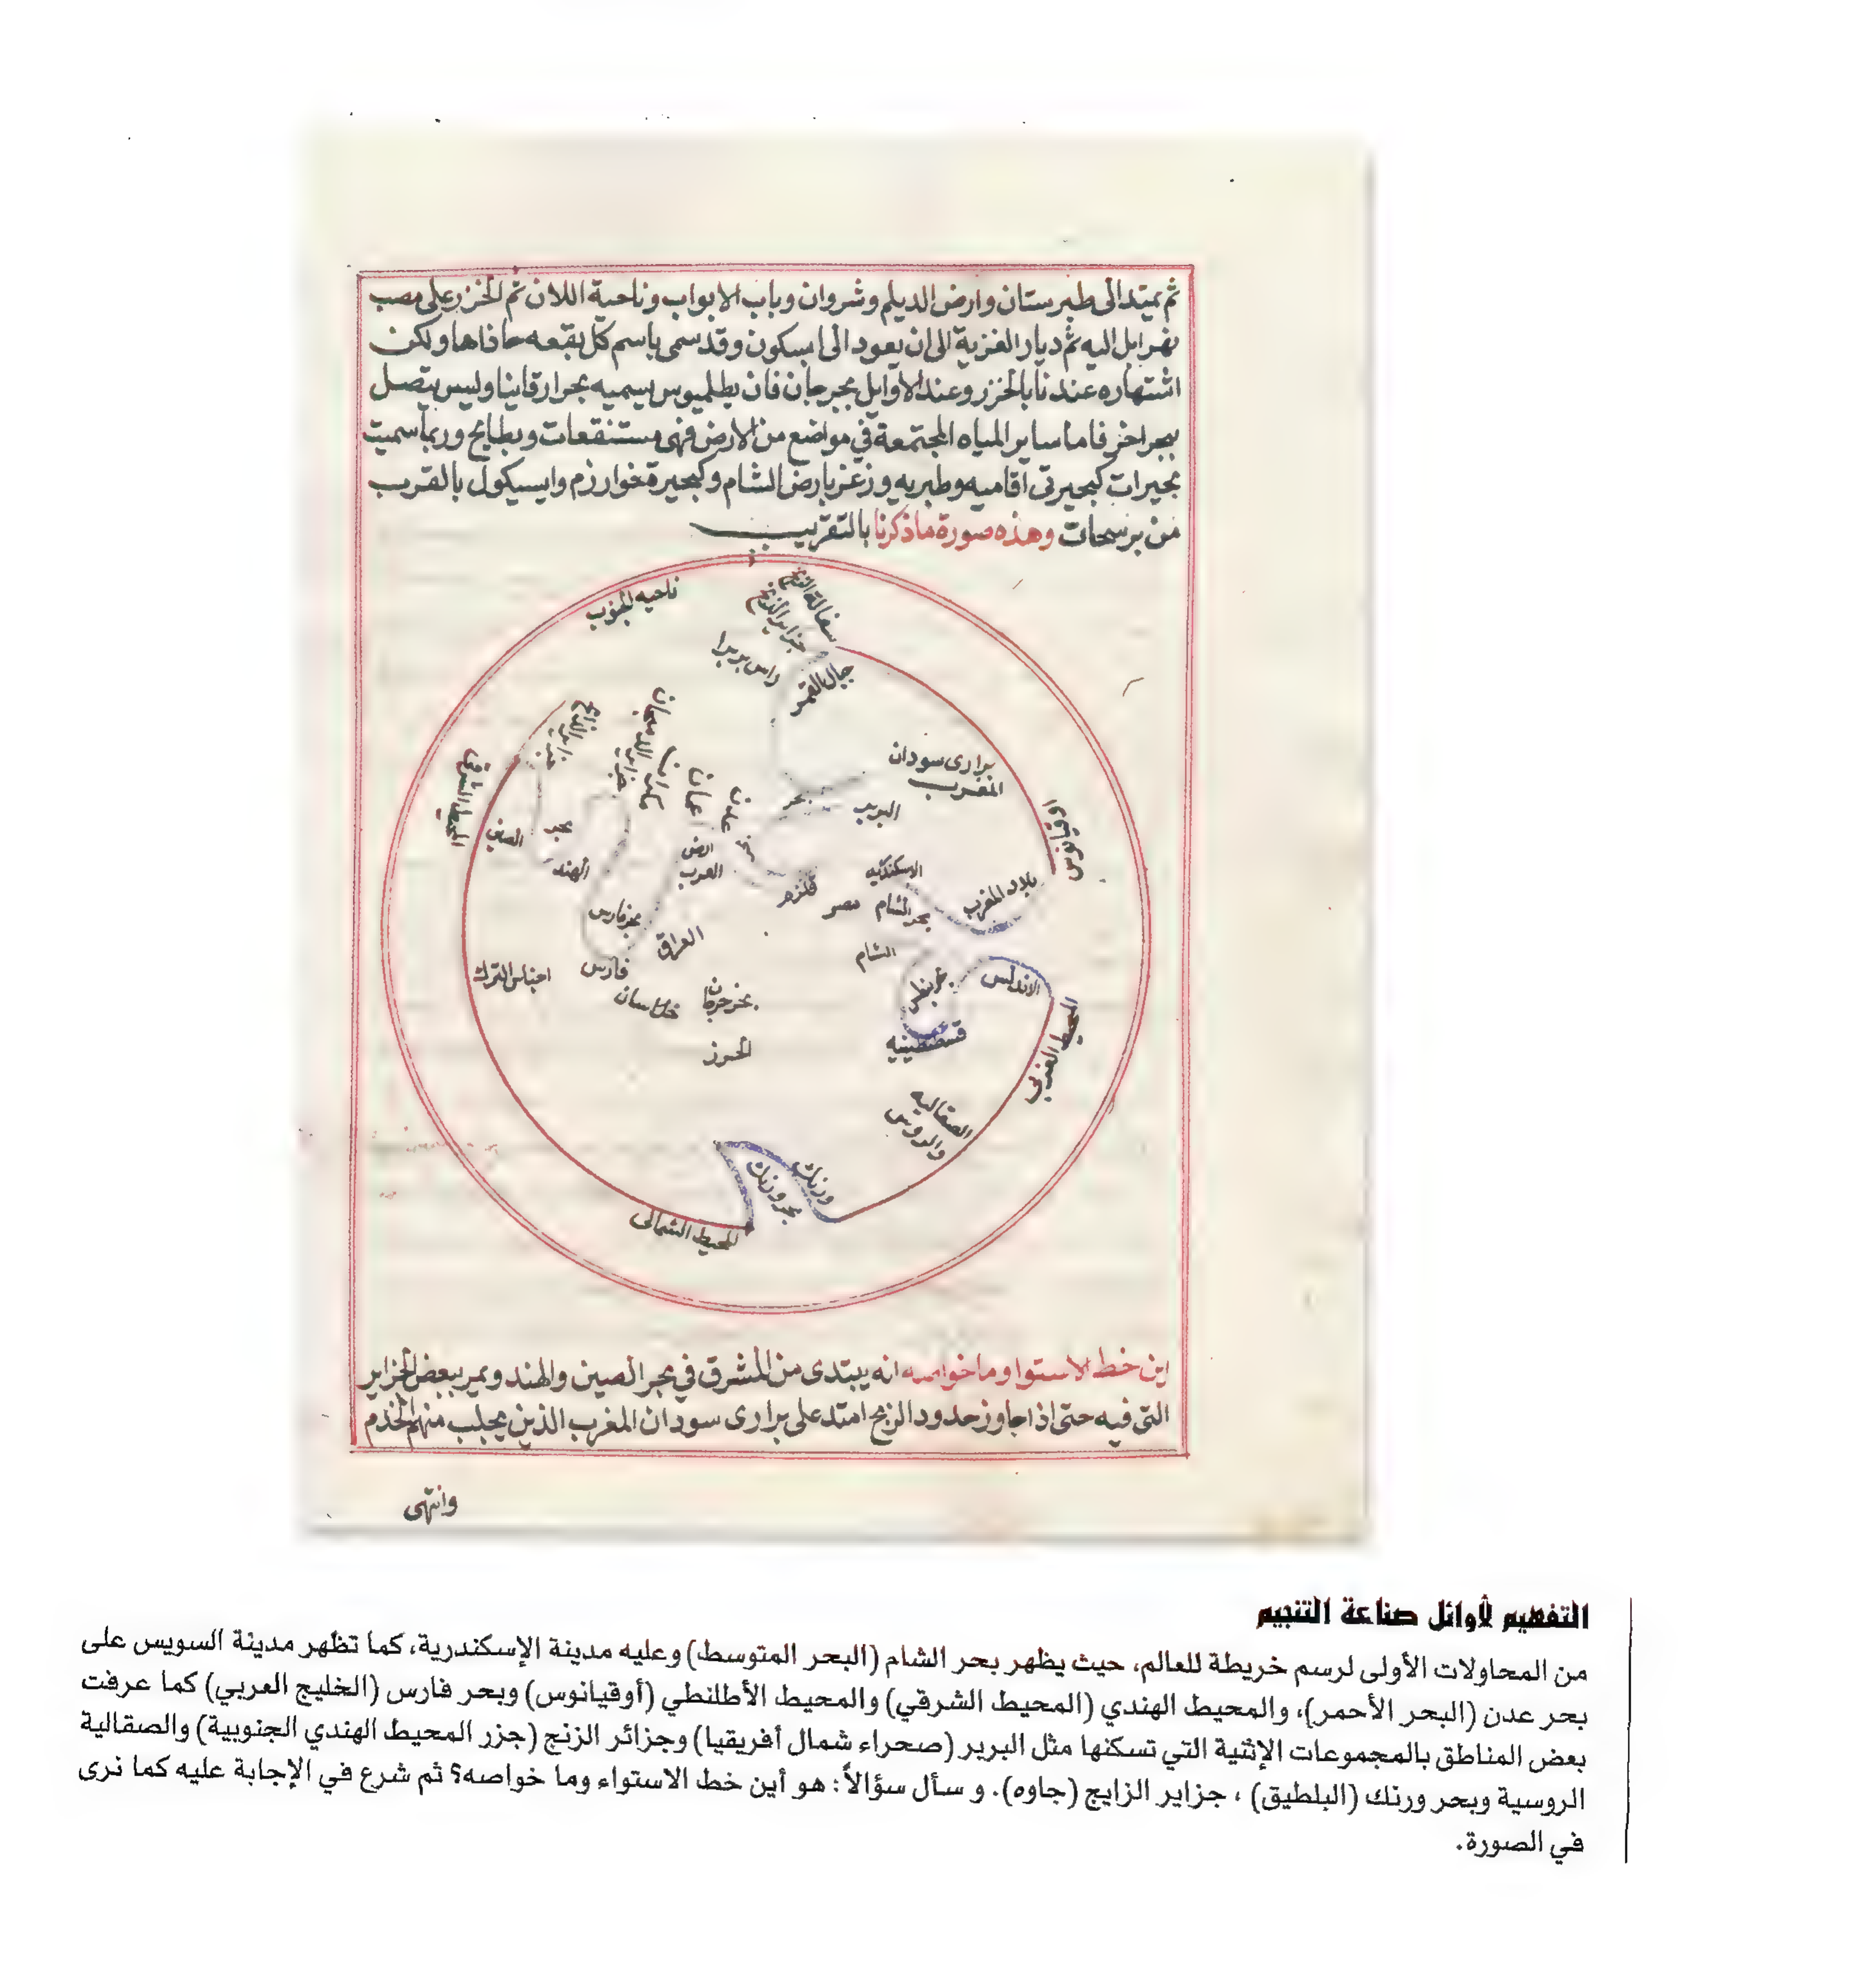 ثم يمتد الى طبرستان وارض الديلم وشروان وباب الابواب وناحية اللان ثم الخزر على مصب
نهر اتل اليه ثم ديار الغزية الى ان يعود الى ابسكون وقد سمى باسم كل بقعه حافاها ولكن
اشتهاره عندنا بالخزر وعند الاوايل بجرجان فان بطلميوس يسميه بحر ارقانيا وليس يتصل
ببحر اخر فاما ساير المياه المجتمعة في مواضع من الارض فهى مستنقعات وبطايح وربما سميت
بحيرات كبحيرتى افاميه وطبريه وزغر بارض الشام وكبحيرة خوارزم وايسيكول بالقرب
من برسخان وهذه صورة ما ذكرنا بالتقريب
ناحيه الجنوب
سفالة الزنج
جزاير الزنج
راس بربرا
جبال القمر
جزاير الزابج
جزاير الديبجات
مكران
عمان
عدن
برارى سودان
المغرب
بحر
البربر
المحيط الشرقي
الصين
بحر
الهند
ارض
العرب
اوقيانوس
الاسكندريه
بلاد المغرب
قلزم
مصر
بحر الشام
بحر فارس
العراق
الشام
فارس
اجناس الترك
خراسان
بحر جرجان
الخزر
بحر بنطس
الاندلس
قسطنطينيه
المحيط الغربي
الصقالبه
والروس
ورنك
بحر ورنك
المحيط الشمالى
اين خط الاستوا وما خواصه انه يبتدى من المشرق في بحر الصين والهند ويمر ببعض الجزاير
التى فيه حتى اذا جاوز حدود الزنج امتد على برارى سودان المغرب الذين يجلب منهم الخدم
وانتهى
التفهيم لأوائل صناعة التنجيم
من المحاولات الأولى لرسم خريطة للعالم، حيث يظهر بحر الشام (البحر المتوسط) وعليه مدينة الإسكندرية، كما تظهر مدينة السويس على
بحر عدن (البحر الأحمر)، والمحيط الهندي (المحيط الشرقي) والمحيط الأطلنطي (أوقيانوس) وبحر فارس (الخليج العربي) كما عرفت
بعض المناطق بالمجموعات الإثنية التي تسكنها مثل البربر (صحراء شمال أفريقيا) وجزائر الزنج (جزر المحيط الهندي الجنوبية) والصقالية
الروسية وبحر ورنك (البلطيق) ، جزاير الزايج (جاوه). و سأل سؤالاً: هو أين خط الاستواء وما خواصه؟ ثم شرع في الإجابة عليه كما نرى
في الصورة.